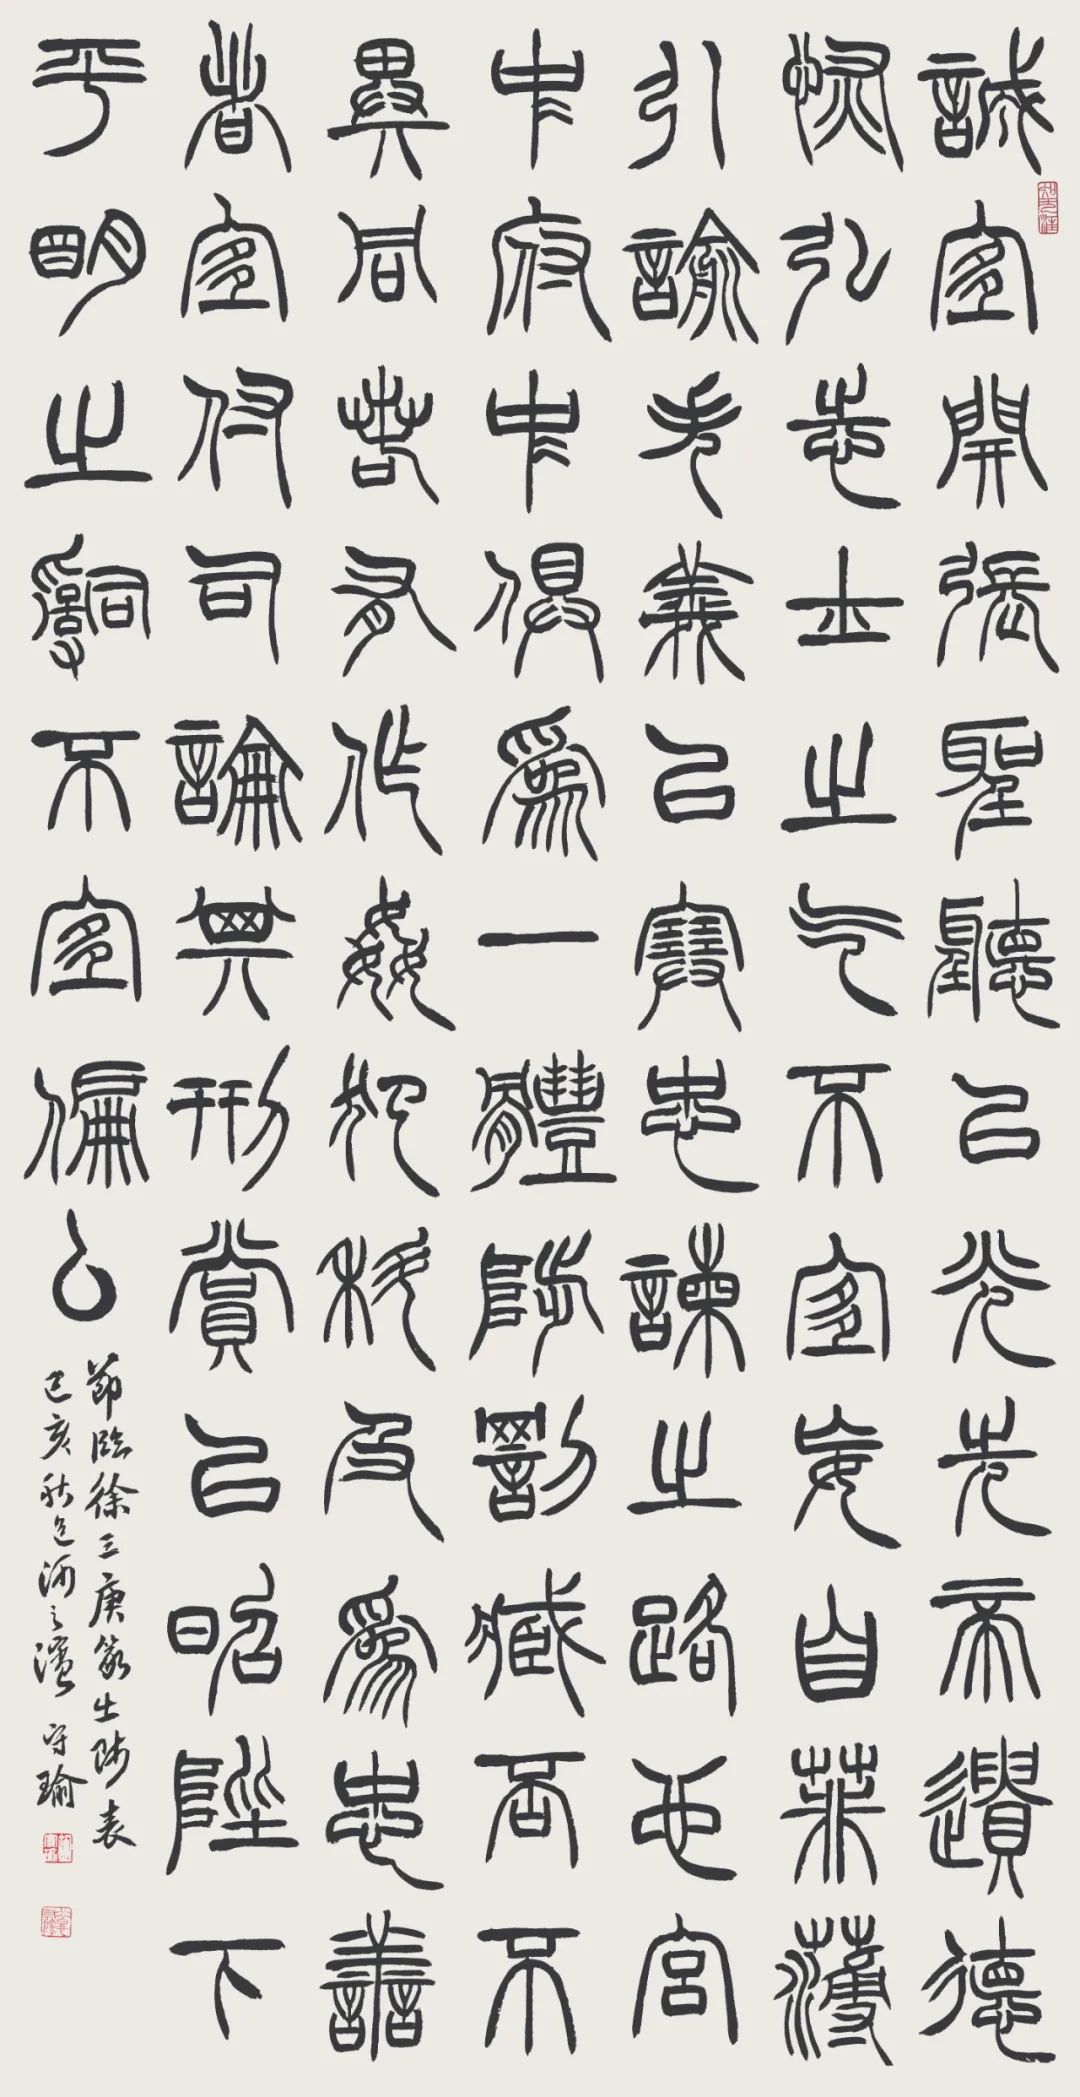 誠宜開張聖聽以光先帝遺德
恢弘志士之气不宜妄自菲薄
引諭失義以塞忠諫之路也宮
中府中俱爲一體陟罰臧否不
異同若有作姦犯科及爲忠善
者宜付司論其刑賞以昭陛下
平明之治不宜偏厶
節臨徐三庚篆出師表
己亥秋之濱 守瑜